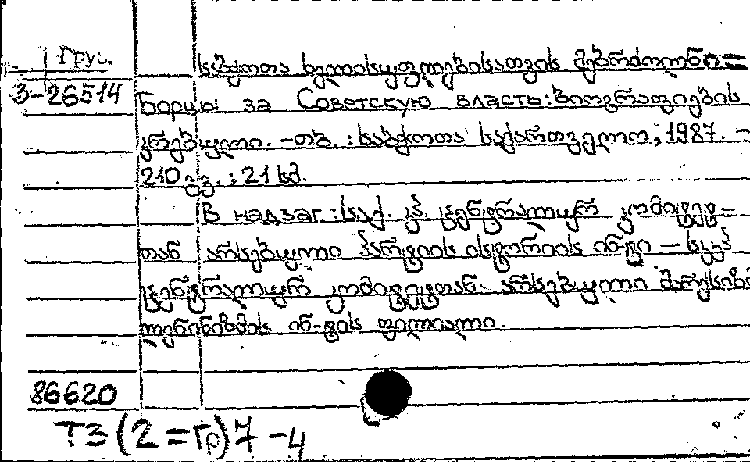 Груз.
საბჭოთა ხელისუფლებისათვის მებრძოლნი =
3-26514
Борцы за Советскую власть: ბიოგრაფიების
კრებული. - თბ. : საბჭოთა საქართველო, 1987. -
210 გვ. : 21 სმ.
В надзаг: საქ. კპ ცენტრალურ კომიტეტ-
თან არსებული პარტიის ისტორიის ინ-ტი - სკკპ
ცენტრალურ კომიტეტთან არსებული მარქსიზმ
ლენინიზმის ინ-ტის ფილიალი.
86620
Т3(2=Гр)7-4